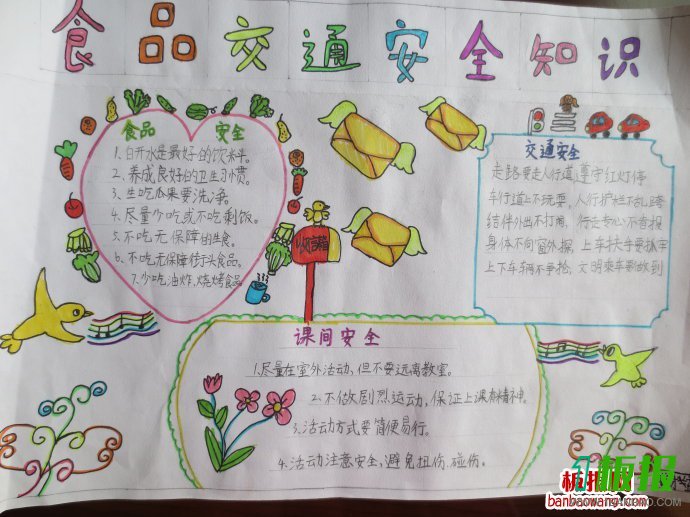 食品交通安全知识
食品 安全
1.白开水是最好的饮料。
2.养成良好的卫生习惯。
3.生吃瓜果要洗净。
4.尽量少吃或不吃剩饭。
5.不吃无保障的生食。
6.不吃无保障街头食品。
7.少吃油炸,烧烤食品
收信箱
交通安全
走路要走人行道遵守红灯停
车行道上不玩耍。人行护栏不乱跨
结伴外出不打闹,行走专心不看报
身体不向窗外探,上车扶手要抓牢
上下车辆不争抢,文明乘车要做到
课间安全
1.尽量在室外活动,但不要远离教室。
2.不做剧烈运动,保证上课有精神。
3.活动方式要简便易行。
4.活动注意安全,避免扭伤.碰伤。
板报
banbaowang.com